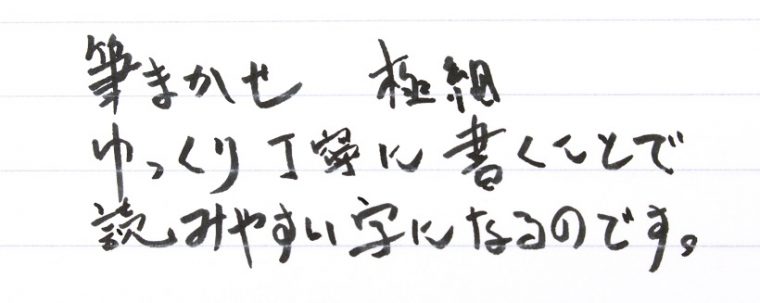 筆まかせ　極細
ゆっくり丁寧に書くことで
読みやすい字になるのです。